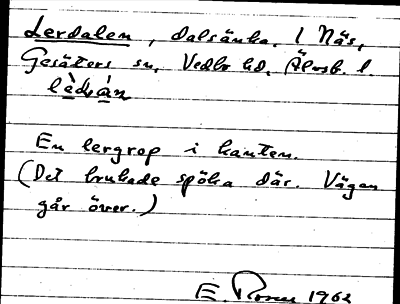 Lerdalen, dalsänka. l Näs,
Gesäters sn, Vedbo hd, Älvsb. l.
lèdàn
En lergrop i kanten.
(Det brukade spöka där. Vägen
går över.)
E. Rosen 1962